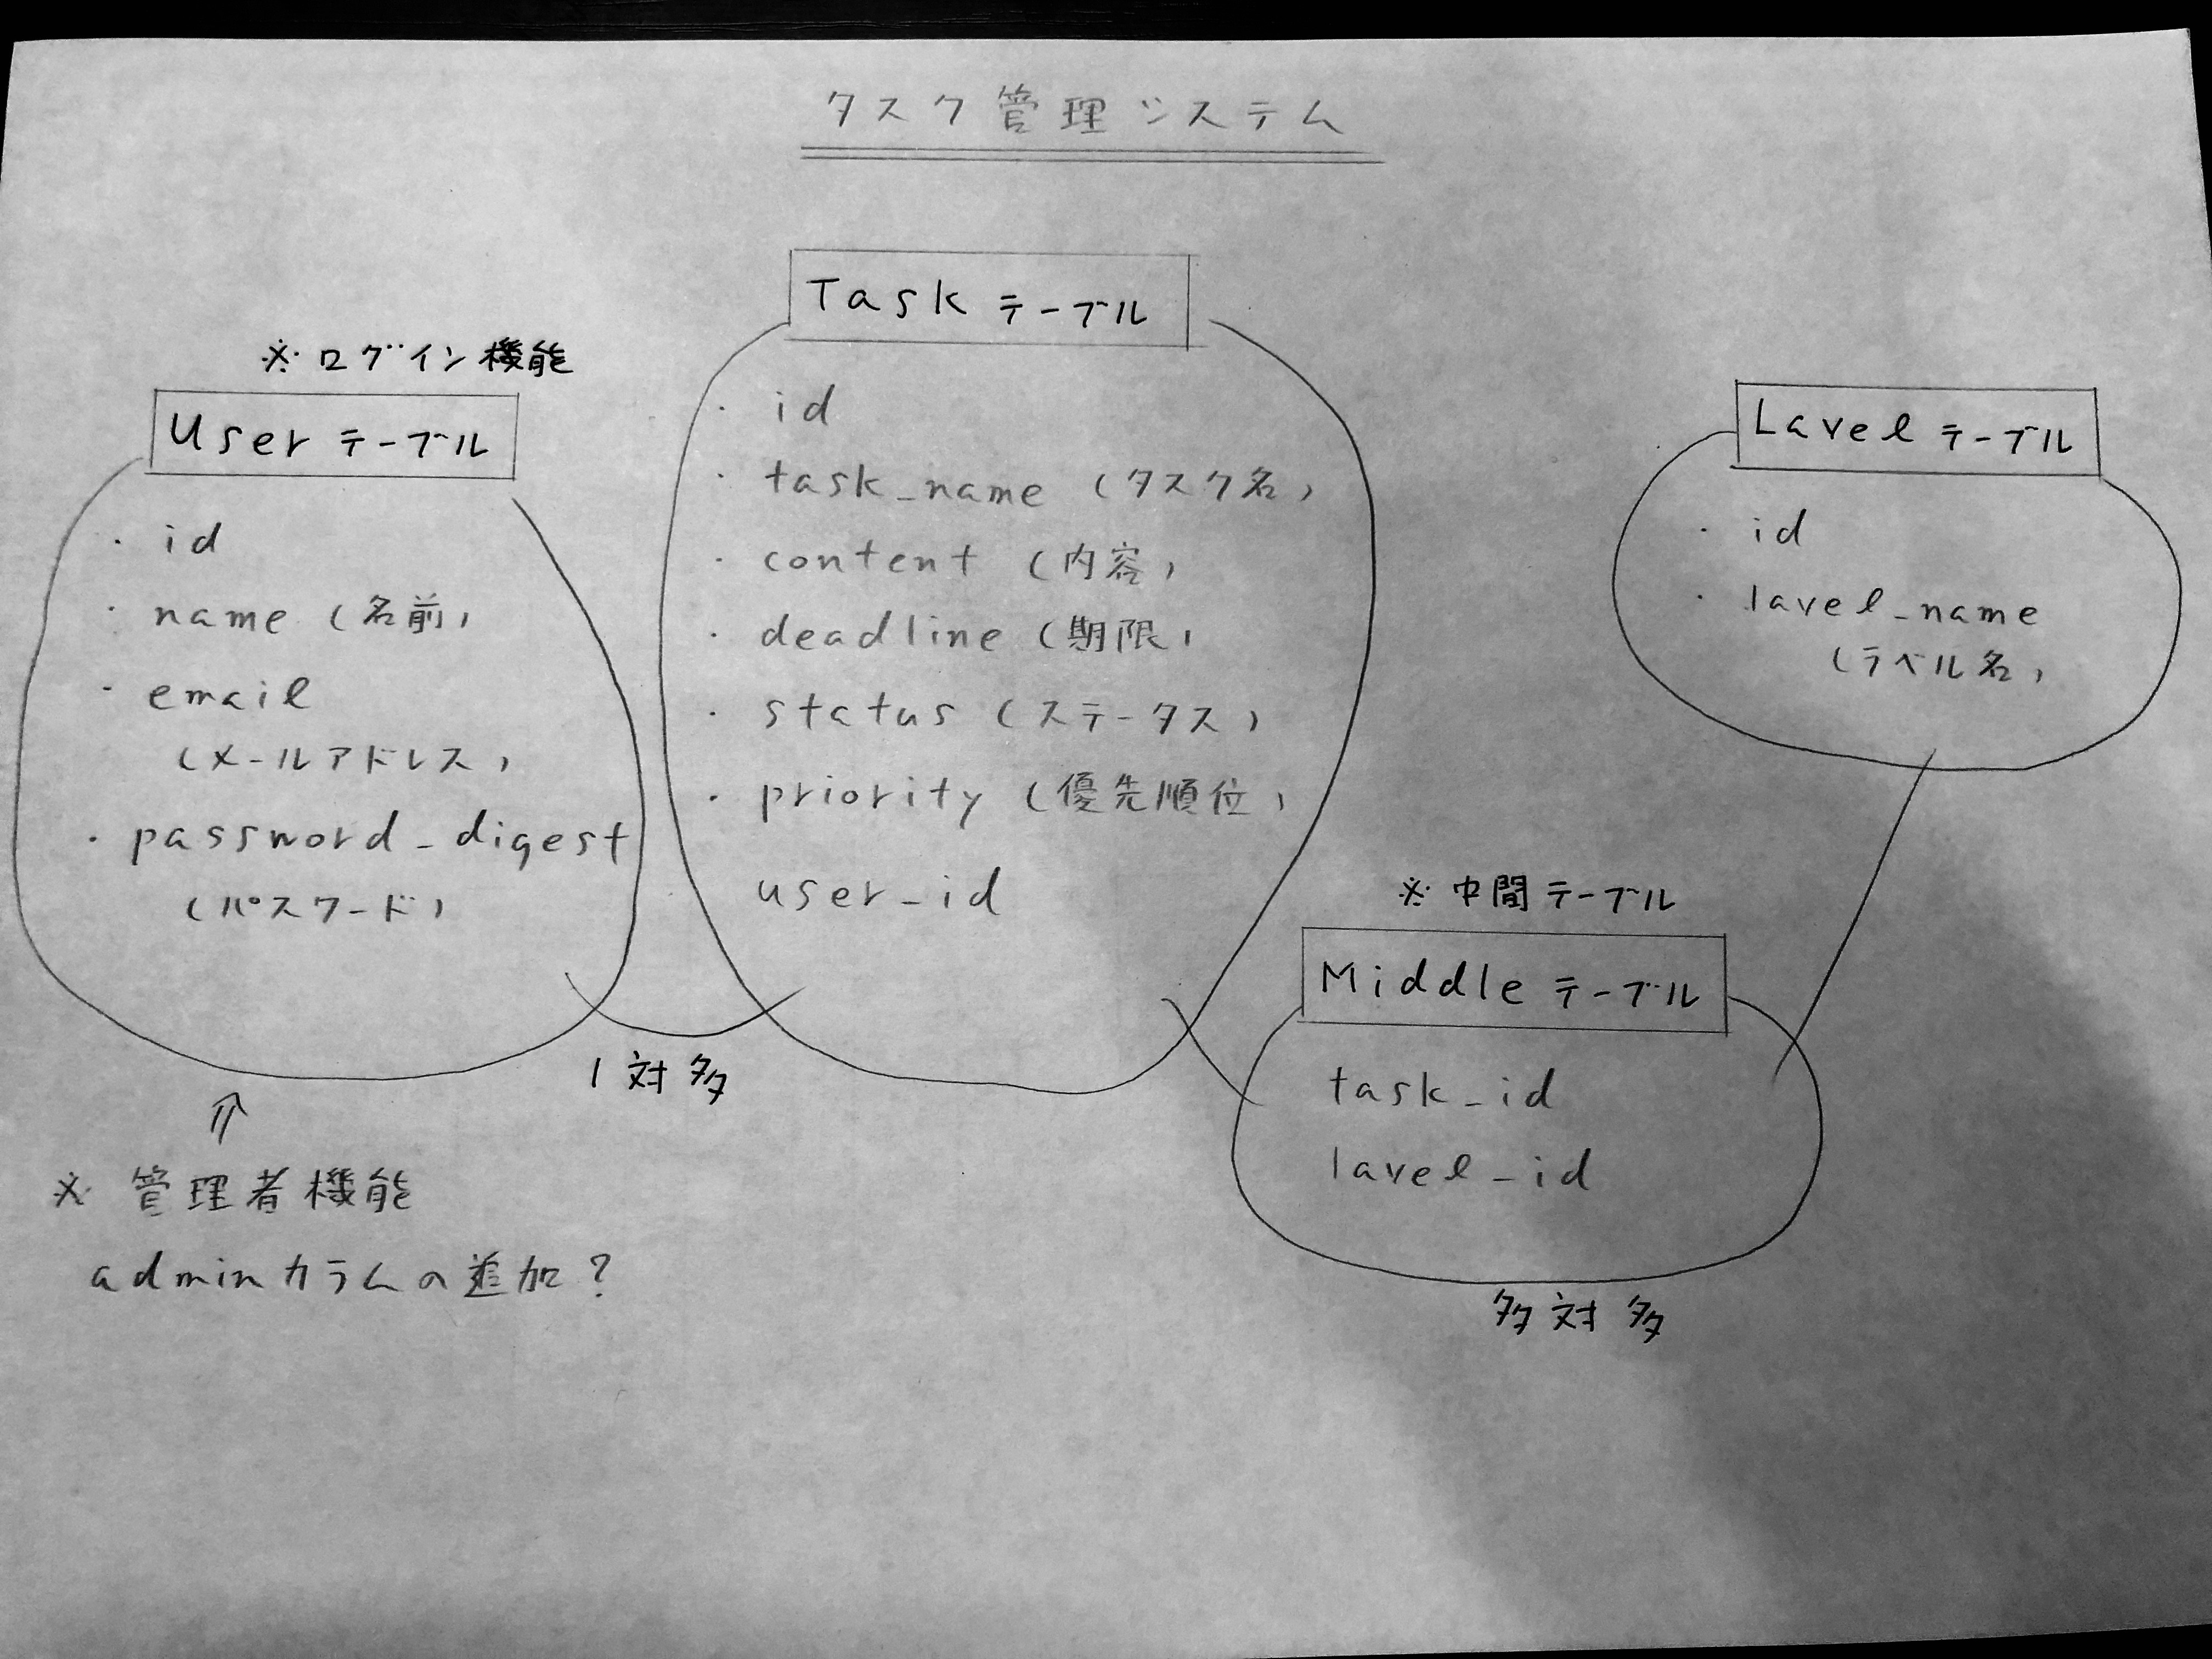 タスク管理システム
※ ログイン機能
User テーブル
・ id
・ name (名前)
・ email
(メールアドレス)
・ password_digest
(パスワード)
※ 管理者機能
adminカラムの追加?
1対多
Task テーブル
・ id
・ task_name (タスク名)
・ content (内容)
・ deadline (期限)
・ status (ステータス)
・ priority (優先順位)
user_id
Lavel テーブル
・ id
・ lavel_name
(ラベル名)
※ 中間テーブル
Middle テーブル
task_id
lavel_id
多対多